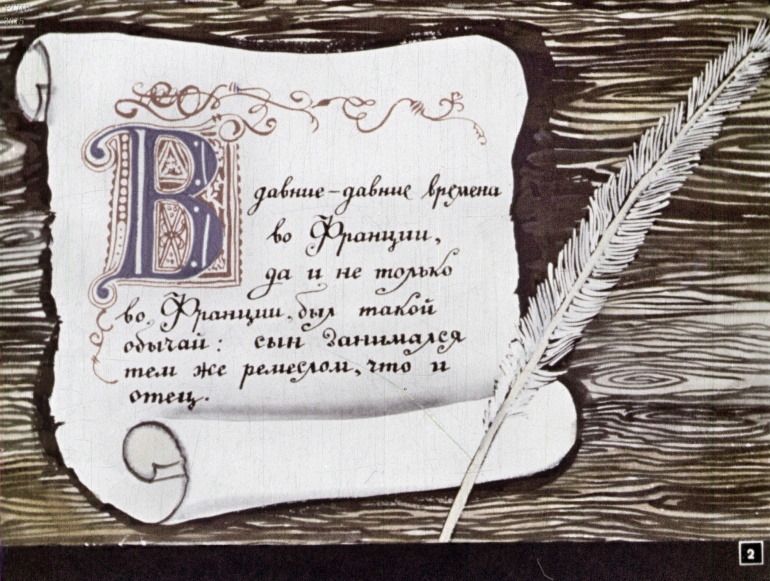 В давние-давние времена
во Франции,
да и не только
во Франции, был такой
обычай: сын занимался
тем же ремеслом, что и
отец.
2